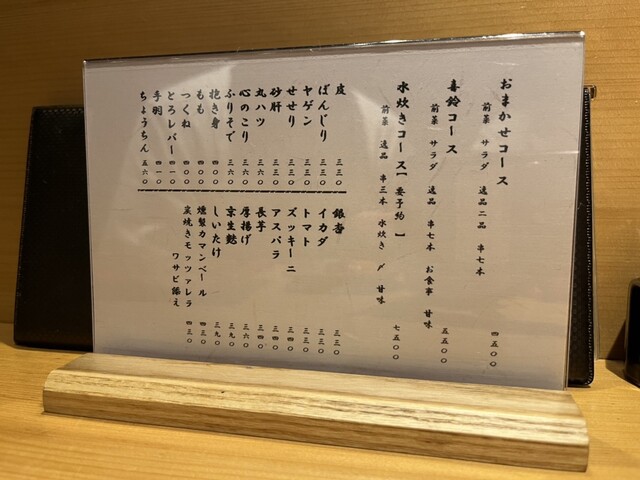 おまかせコース
前菜 サラダ 逸品二品 串七本 四五〇〇
喜鈴コース
前菜 サラダ 逸品 串七本 お食事 甘味 五五〇〇
水炊きコース【要予約】
前菜 逸品 串三本 水炊き 〆 甘味 七五〇〇
皮 三三〇
ぼんじり 三三〇
ヤゲン 三三〇
せせり 三三〇
砂肝 三三〇
丸ハツ 三六〇
心のこり 三六〇
ふりそで 三六〇
抱き身 四〇〇
もも 四〇〇
つくね 四〇〇
とろレバー 四一〇
手羽 四一〇
ちょうちん 五六〇
銀杏 三三〇
イカダ 三三〇
トマト 三三〇
ズッキーニ 三四〇
アスパラ 三四〇
長芋 三四〇
厚揚げ 三六〇
京生麩 三九〇
しいたけ 三九〇
燻製カマンベール 四三〇
炭焼きモッツァレラ
ワサビ添え 四三〇